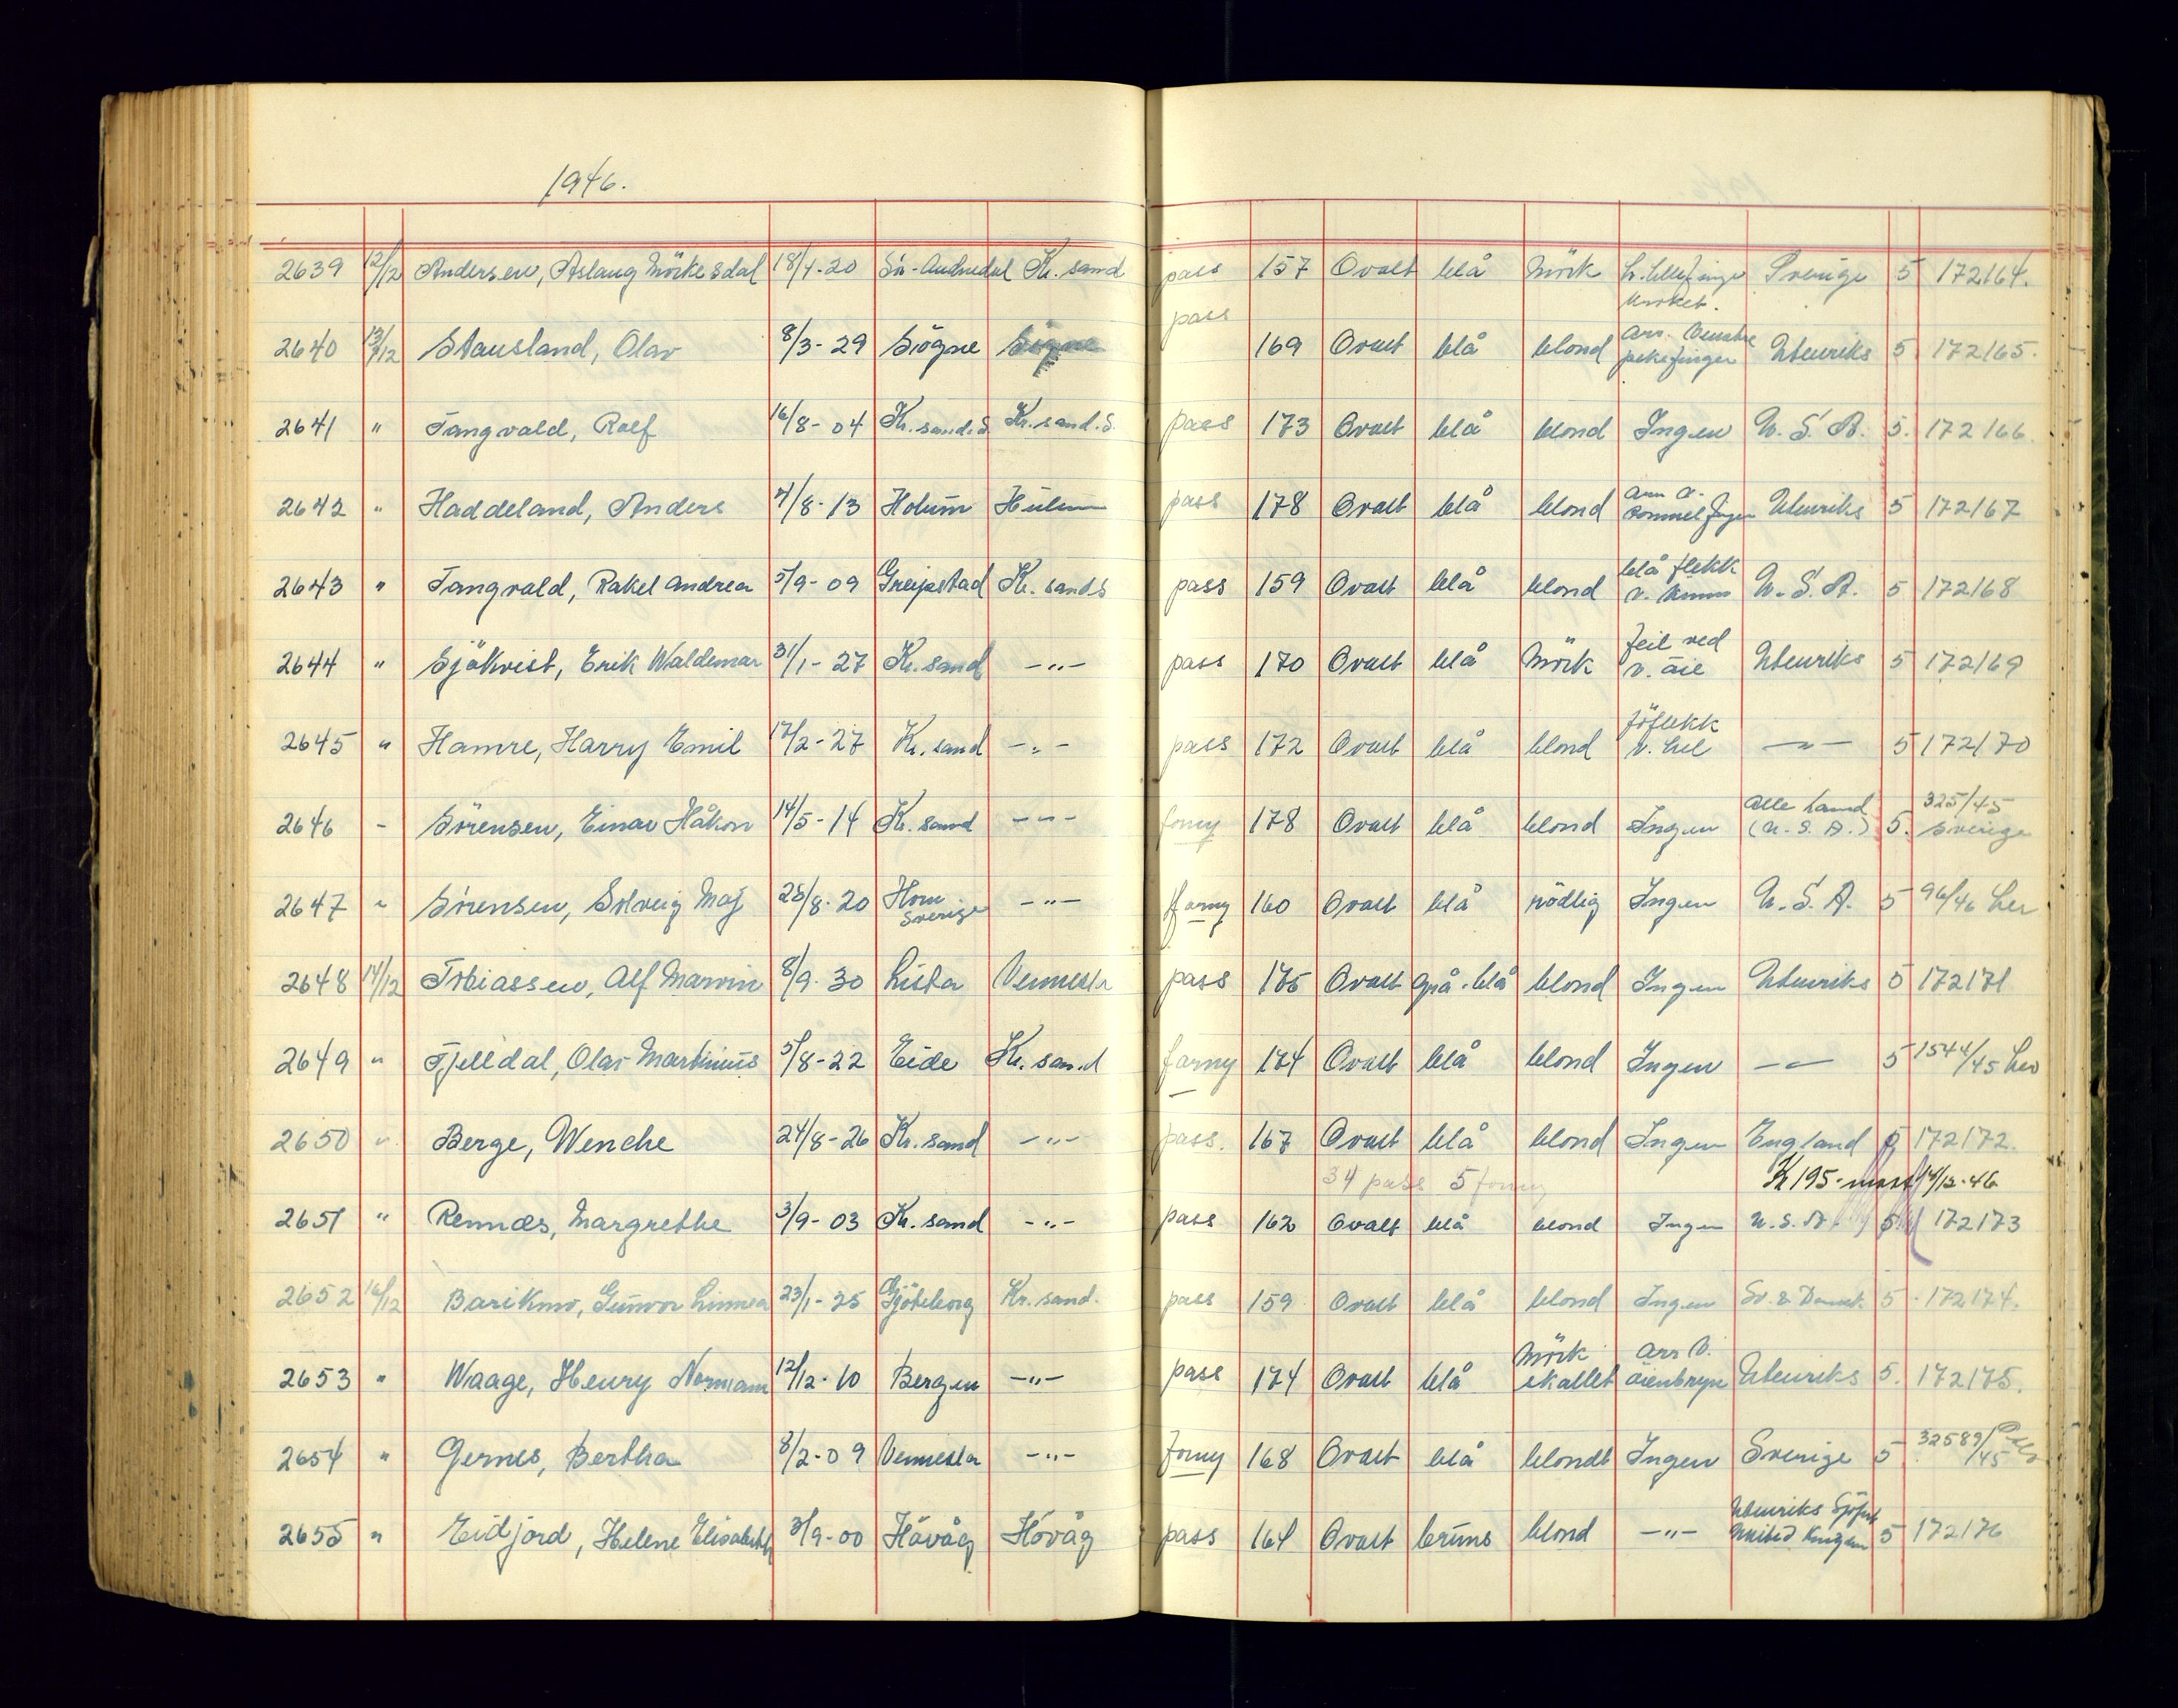 1946.
2639 12/12 Andersen, Aslaug Mörkesdal 18/4-20 Sör-Audnedal Kr. sand pass 157 Ovalt blå Mörk h. lillefinger Sverige 5 172164.
kroket.
2640 13/12 Stausland, Olav 8/3-29 Sögne Sögne pass 169 Ovalt blå blond arr. venstre pekefinger Utenriks 5 172165.
2641 " Tangvald, Rolf 16/8-04 Kr. sand. S Kr. sand. S. pass 173 Ovalt blå blond Ingen U. S. A. 5. 172166.
2642 " Haddeland, Anders 4/8-13 Holum Holum pass 178 Ovalt blå blond arr v. tommelfinger Utenriks 5 172167
2643 " Tangvald, Rakel Andrea 5/9-09 Greipstad Kr. sand S pass 159 Ovalt blå blond blå flekk v. U. S. A. 5 172168
2644 " Sjökvist, Erik Waldemar 31/1-27 Kr. sand -"- pass 170 Ovalt blå Mörk feil ved v. öie Utenriks 5 172169
2645 " Hamre, Harry Emil 17/2-27 Kr. sand -"- pass 172 Ovalt blå blond föflekk v. hel -"- 5 172170
2646 - Sörensen, Einar Håkon 14/5-14 Kr. sand -"- forny 178 Ovalt blå blond Ingen Alle land (U. S. A.) 5. 325/45 Sverige
2647 " Sörensen, Solveig Maj 28/8-20 Horn Sverige -"- forny 160 Ovalt blå rödlig Ingen U. S. A. 5 96/46 her
2648 14/12 Tobiassen, Alf Marvin 8/9-30 Lista Vennesla pass 175 Ovalt grå-blå blond Ingen Utenriks 5 172171
2649 " Tjelldal, Olav Martinius 5/8-22 Eide Kr. sand forny 174 Ovalt blå blond Ingen -"- 5 1544/45 her
2650 " Berge, Wenche 24/8-26 Kr. sand -"- pass. 167 Ovalt blå blond Ingen England 5 172172.
34 pass 5 forny Kr 195.- mott 14/12-46
2651 " Rennæs, Margrethe 3/9-03 Kr. sand -"- pass 162 Ovalt blå blond Ingen U. S. A. 5 172173
2652 16/12 Barikmo, Gunvor Linnea 23/1-25 Gjöteborg Kr. sand. pass 159 Ovalt blå blond Ingen Sv. & Danm. 5 172174.
2653 " Waage, Henry Normann 12/12-10 Bergen -"- pass 174 Ovalt blå Mörk skallet arr v. öienbryn Utenriks 5. 172175.
2654 " Gernes, Bertha 8/2-09 Vennesla -"- forny 168 Ovalt blå blondt Ingen Sverige 5 32589/45
2655 " Eidjord, Helene Elisabeth 3/9-00 Hövåg Hövåg pass 164 Ovalt bruns blond -"- Utenriks United 5 172176